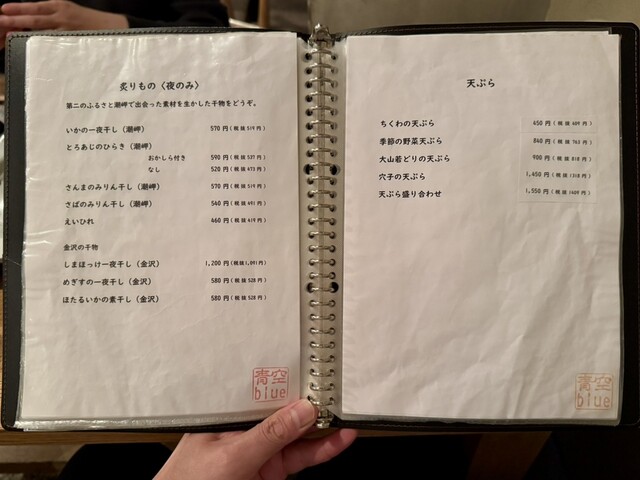 炙りもの〈夜のみ〉
第二のふるさと潮岬で出会った素材を生かした干物をどうぞ。
いかの一夜干し（潮岬） 570 円（税抜 519 円）
とろあじのひらき（潮岬）
おかしら付き 590 円（税抜 537 円）
なし 520 円（税抜 473 円）
さんまのみりん干し（潮岬） 570 円（税抜 519 円）
さばのみりん干し（潮岬） 540 円（税抜 491 円）
えいひれ 460 円（税抜 419 円）
金沢の干物
しまほっけ一夜干し（金沢） 1,200 円（税抜 1,091 円）
めぎすの一夜干し（金沢） 580 円（税抜 528 円）
ほたるいかの素干し（金沢） 580 円（税抜 528 円）
青空
blue
天ぷら
ちくわの天ぷら 450 円（税抜 409 円）
季節の野菜天ぷら 840 円（税抜 763 円）
大山若どりの天ぷら 900 円（税抜 818 円）
穴子の天ぷら 1,450 円（税抜 1318 円）
天ぷら盛り合わせ 1,550 円（税抜 1409 円）
青空
blue